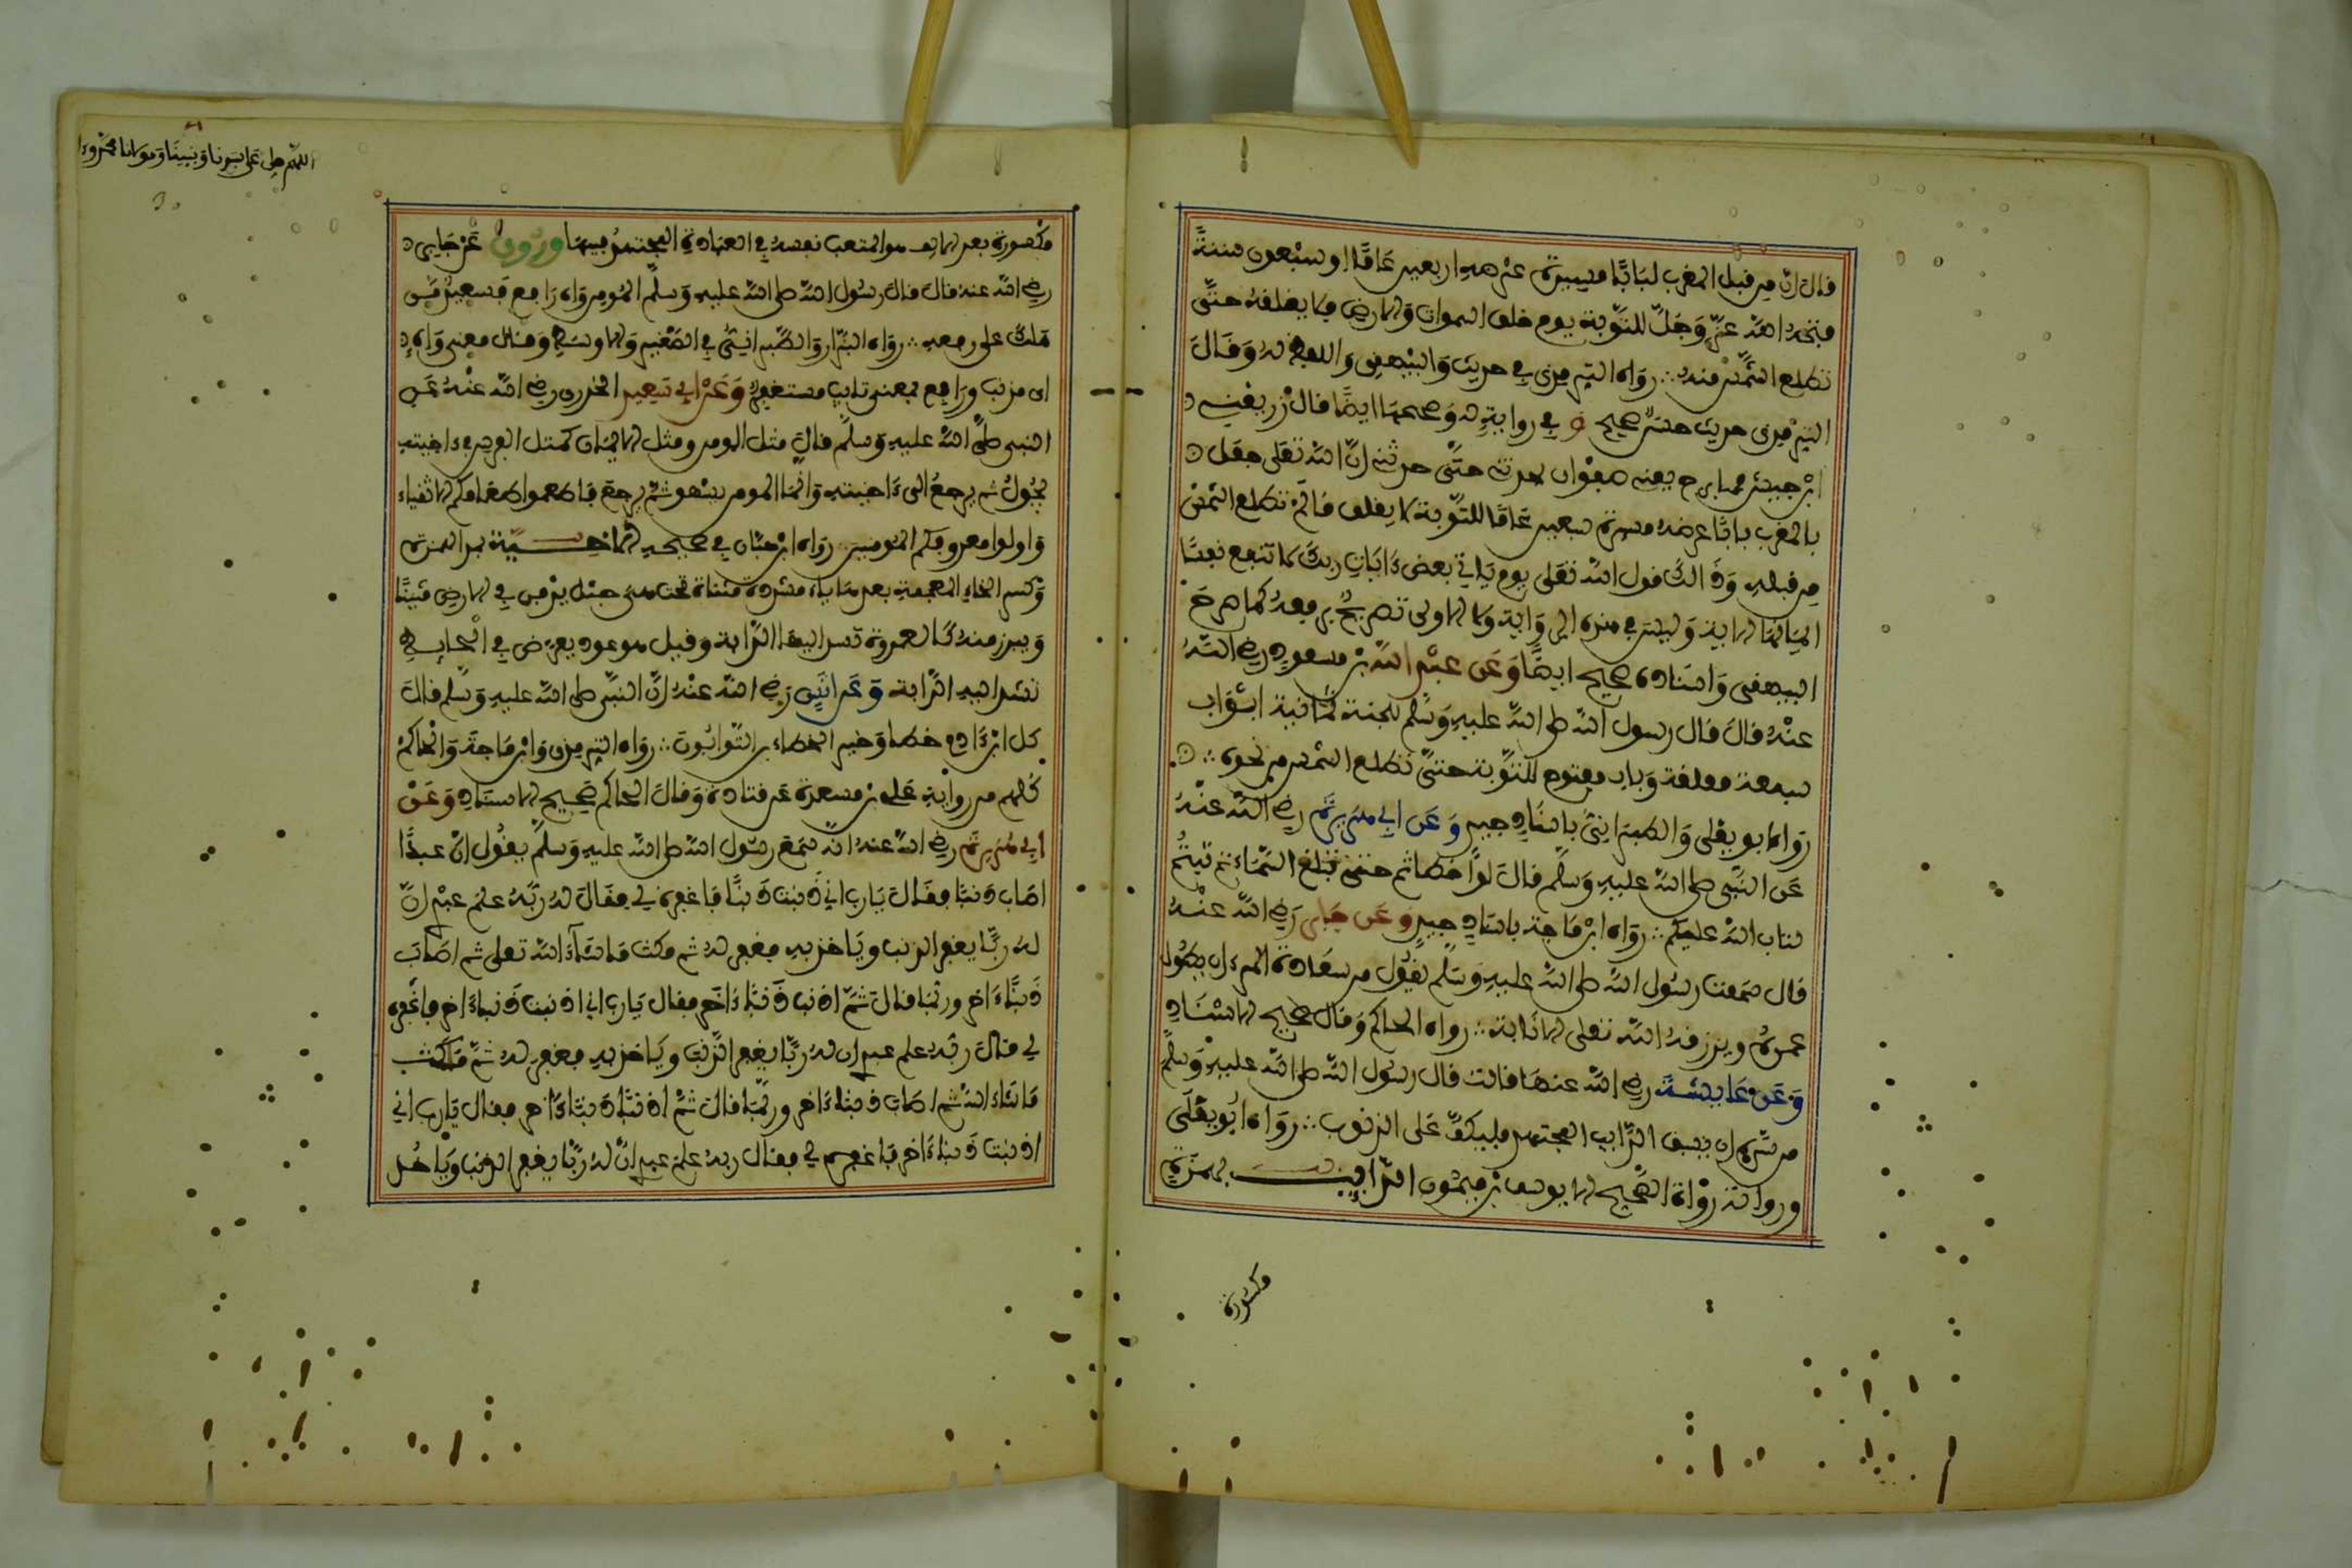 قال ان من قبل المغرب لبابا مسيرة عرضه اربعين عاما او سبعون سنة
فتحه الله عز وجل للتوبة يوم خلق السموات والارض فلا يغلقه حتى
تطلع الشمس منه رواه الترمذي في حديث والبيهقي واللفظ له وقال
الترمذي حديث حسن صحيح و في رواية له وصححها ايضا قال زر يعني
ابن حبيش فما برح يعني صفوان يحدثني حتى حدثني ان الله تعلى جعل
بالمغرب بابا عرضه مسيرة سبعين عاما للتوبة لا يغلق ما لم تطلع الشمس
من قبله وذالك قول الله تعلى يوم ياتي بعض ءايات ربك لا تنفع نفسا
ايمانها الاية وليس في هذه الرواية ولا الاولى تصريح برفعه كما صرح
البيهقي واسناده صحيح ايضا وعن عبد الله بن مسعود رضي الله
عنه قال قال رسول الله صلى الله عليه وسلم للجنة ثمانية ابواب
سبعة مغلقة وباب مفتوح للتوبة حتى تطلع الشمس من نحوه
رواه ابو يعلى والطبراني باسناد جيد وعن ابي هريرة رضي الله عنه
عن النبي صلى الله عليه وسلم قال لو اخطاتم حتى تبلغ السماء ثم تبتم
لتاب الله عليكم رواه ابن ماجة باسناد جيد وعن جابر رضي الله عنه
قال سمعت رسول الله صلى الله عليه وسلم يقول من سعادة المرء ان يطول
عمره ويرزقه الله تعلى الانابة رواه الحاكم وقال صحيح الاسناد
وعن عايشة رضي الله عنها قالت قال رسول الله صلى الله عليه وسلم
من سره ان يسبق الدايب المجتهد فليكف على الذنوب رواه ابو يعلى
ورواته رواة الصحيح الا يوسف بن ميمون الدايب بهمزة
مكسورة
اللهم صل على سيدنا ونبينا ومولانا محمد وءا
مكسورة بعد الالف هو المتعب نفسه في العبادة المجتهد فيها وروي عن جابر
رضي الله عنه قال قال رسول الله صلى الله عليه وسلم المومن واه راقع فسعيد من
هلك على رقعه رواه البزار والطبراني في الصغير والاوسط وقال معنى واه
اي مذنب وراقع بمعنى تايب مستغفر وعن ابي سعيد الخدري رضي الله عنه عن
النبي صلى الله عليه وسلم قال مثل المومن ومثل الايمان كمثل الفرس في ءاخيته
يجول ثم يرجع الى ءاخيته وانما المومن يسهو ثم يرجع فاطعموا طعامكم الاتقياء
واولوا معروفكم المومنين رواه ابن حبان في صحيحه الاخية بمد الهمزة
وكسر الخاء المعجمة بعدها ياء مشددة مثناة تحت هي حبل يدفن في الارض مثنيا
ويبرز منه كالعروة تشد اليها الدابة وقيل هو عود يعرض في الحايط
تشد اليه الدابة وعن انس رضي الله عنه ان النبي صلى الله عليه وسلم قال
كل ابن ءادم خطاء وخير الخطاءين التوابون رواه الترمذي وابن ماجة والحاكم
كلهم من رواية علي بن مسعدة عن قتادة وقال الحاكم صحيح الاسناد وعن
ابي هريرة رضي الله عنه انه سمع رسول الله صلى الله عليه وسلم يقول ان عبدا
اصاب ذنبا فقال يارب اني اذنبت ذنبا فاغفره لي فقال له ربه علم عبدي ان
له ربا يغفر الذنب وياخذ به فغفر له ثم مكث ما شاء الله تعلى ثم اصاب
ذنبا ءاخر وربما قال ثم اذنب ذنبا ءاخر فقال يارب اني اذنبت ذنبا ءاخر فاغفره
لي قال ربه علم عبدي ان له ربا يغفر الذنب وياخذ به فغفر له ثم مكث
ما شاء الله ثم اصاب ذنبا ءاخر وربما قال ثم اذنب ذنبا ءاخر فقال يارب اني
اذنبت ذنبا ءاخر فاغفره لي فقال ربه علم عبدي ان له ربا يغفر الذنب وياخذ